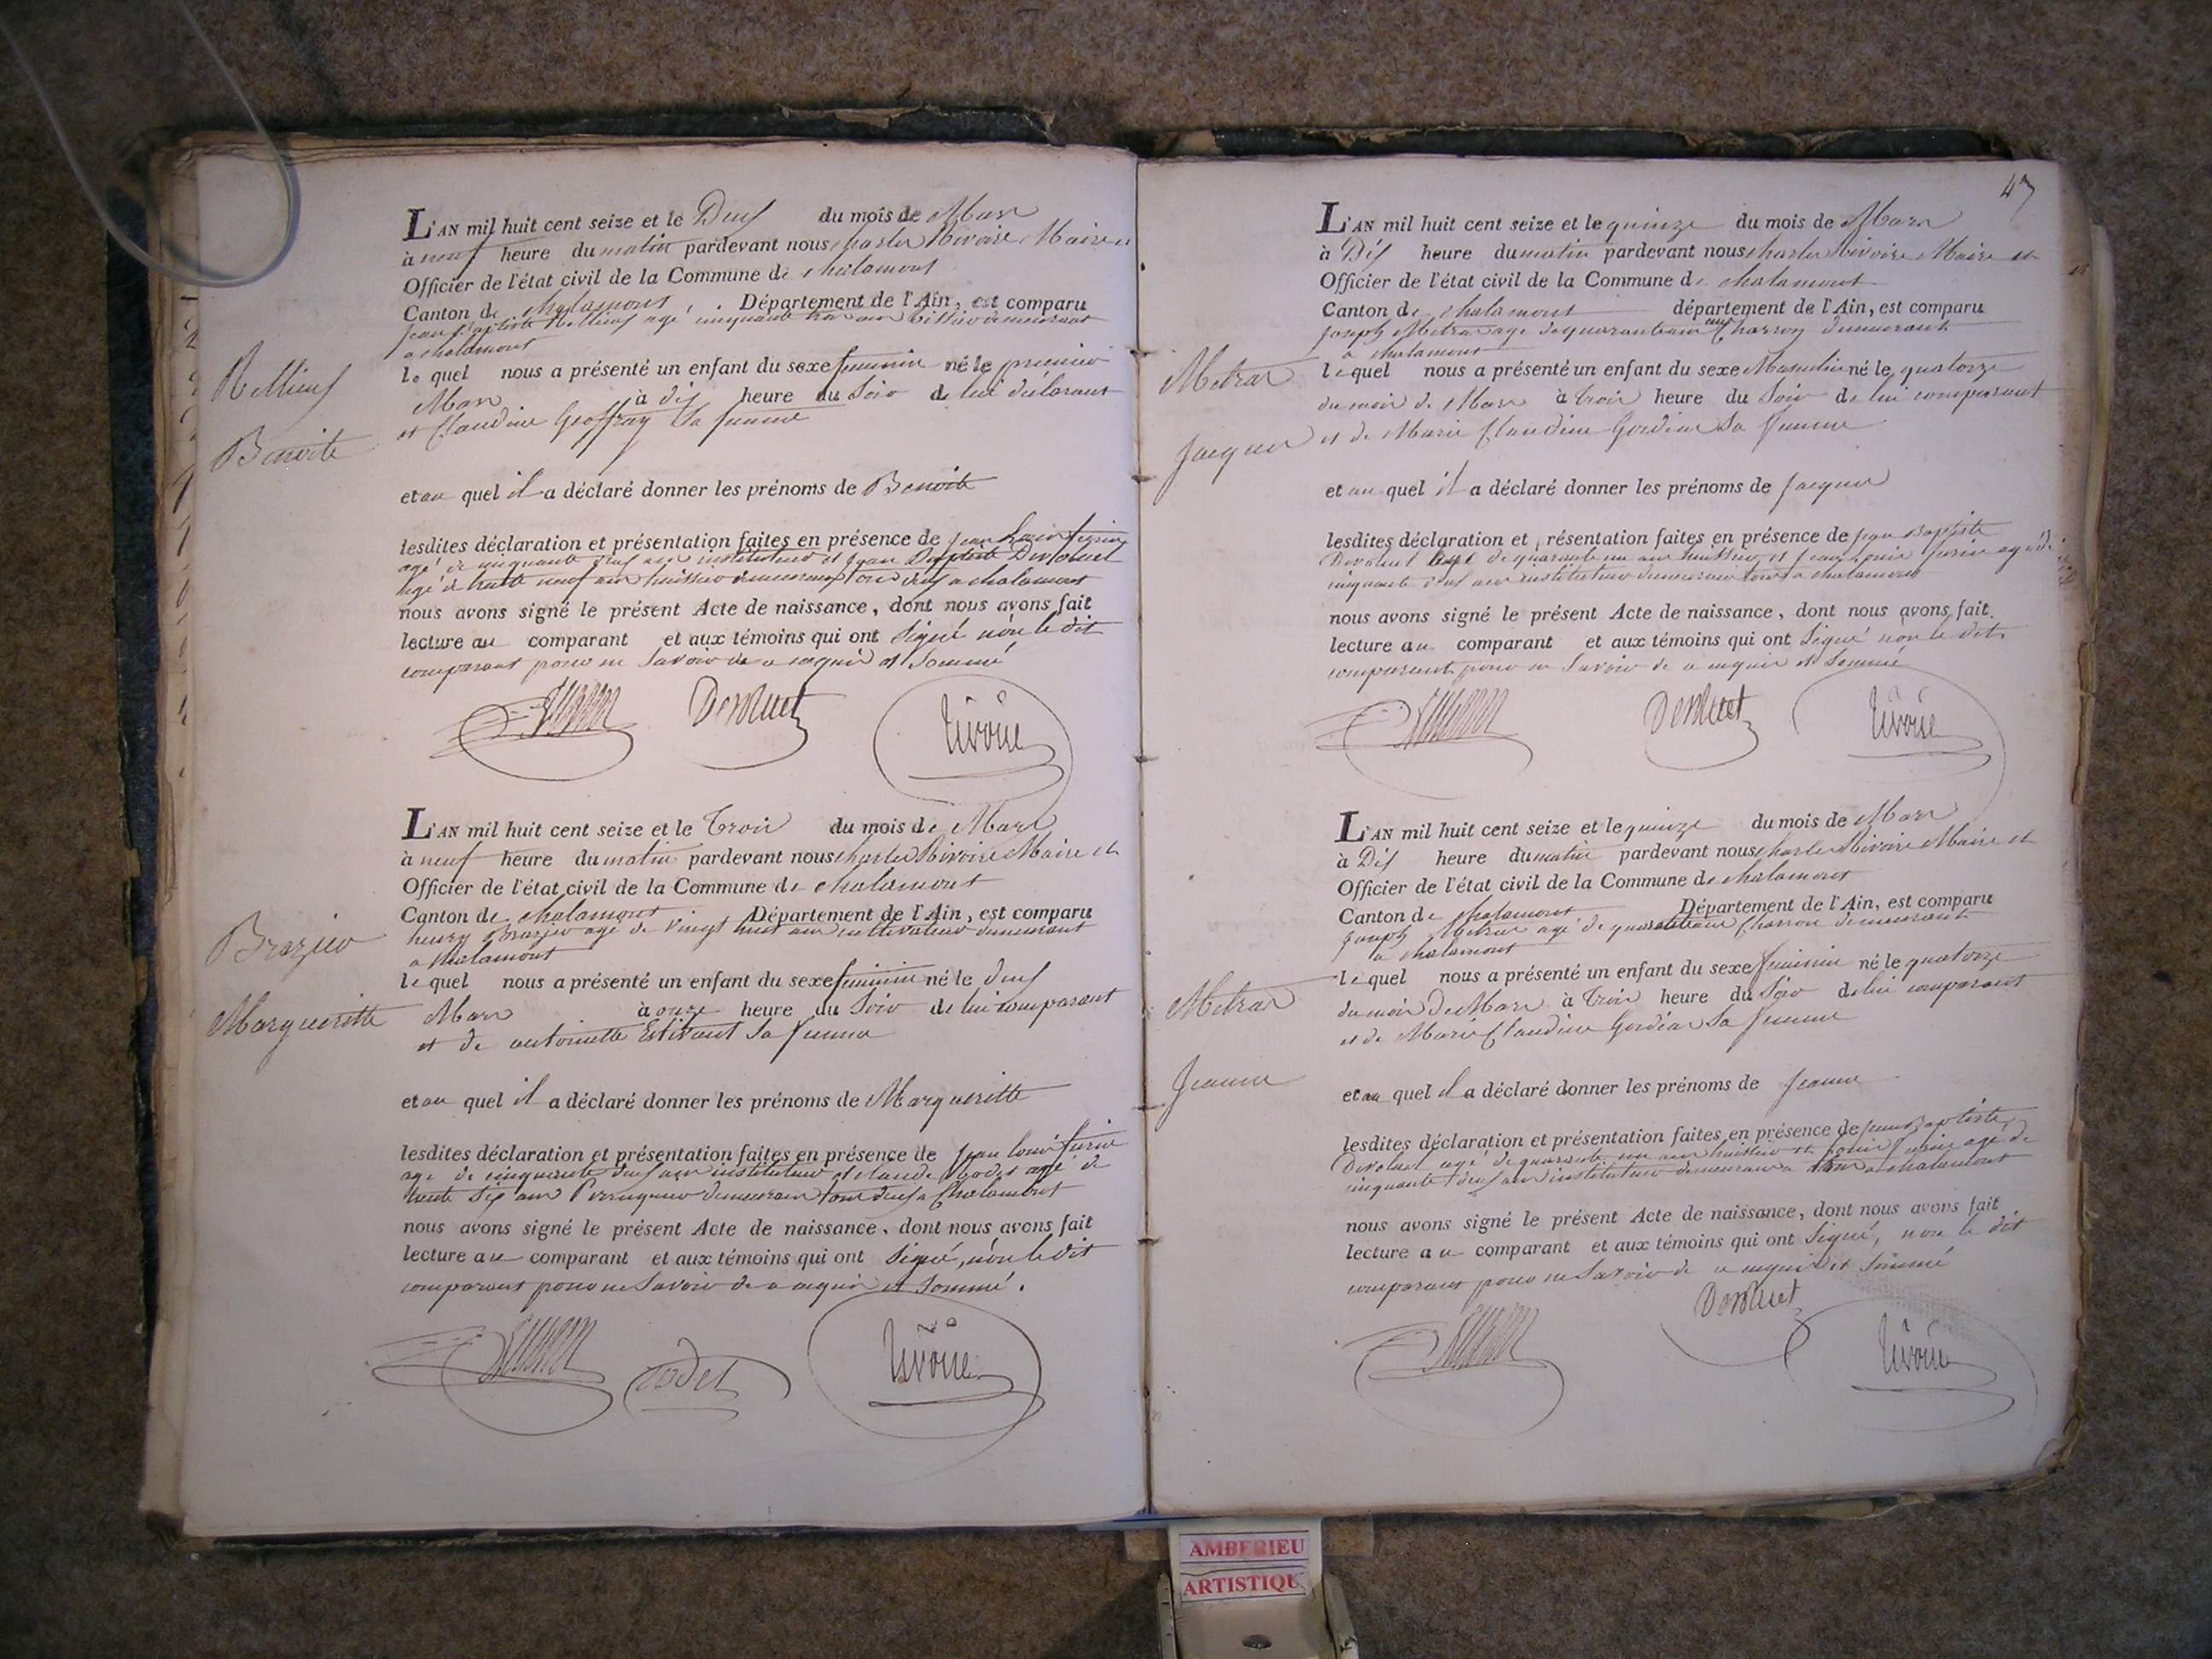 L'AN mil huit cent seize et le Deux du mois de Mars
à neuf heure du matin pardevant nous charles Rivoire Maire et
Officier de l'état civil de la Commune de chalamont
Canton de chalamont, . Département de l'Ain, est comparu
Jean Baptiste agé cinquante trois ans demeurant
a chalamont
le quel nous a présenté un enfant du sexe feminin né le premier
Mars à dix heure du Soir de lui declarant
et Claudine Geoffray Sa femme
Benoite
et au quel il a déclaré donner les prénoms de Benoite
lesdites déclaration et présentation faites en présence de Jean Louis
agé de cinquante deux ans instituteur et Jean Baptiste Devoluet
agé de trente neuf ans huissier demeurant tous deux a chalamont
nous avons signé le présent Acte de naissance, dont nous avons fait
lecture au comparant et aux témoins qui ont Signé non le dit
comparant pour ne Savoir de ce requis et Sommé
Devoluet
Rivoire
L'AN mil huit cent seize et le Trois du mois de Mars
à neuf heure du matin pardevant nous charles Rivoire Maire et
Officier de l'état civil de la Commune de chalamont
Canton de chalamont Département de l'Ain, est comparu
henry Brazier agé de Vingt huit ans cultivateur demeurant
a chalamont
Brazier
le quel nous a présenté un enfant du sexe feminin né le deux
Margueritte
Mars à onze heure du Soir de lui comparant
et de antoinette Estivant Sa femme
et au quel il a déclaré donner les prénoms de Margueritte
lesdites déclaration et présentation faites en présence de Jean louis
agé de cinquante deux ans instituteur et claude Rodet agé de
trente Six ans Perruquier demeurant tous deux a Chalamont
nous avons signé le présent Acte de naissance, dont nous avons fait
lecture au comparant et aux témoins qui ont Signé, non le dit
comparant pour ne Savoir de ce requis et Sommé.
Rodet
Rivoire
47
L'AN mil huit cent seize et le quinze du mois de Mars
à Dix heure du matin pardevant nous charles Rivoire Maire et
Officier de l'état civil de la Commune de chalamont
Canton de chalamont département de l'Ain, est comparu
Joseph Metras age de quarante ans Charron demeurant
a chalamont
Metras
le quel nous a présenté un enfant du sexe Masculin né le quatorze
du mois de Mars à trois heure du Soir de lui comparant
Jacques
et de Marie Claudine Gordias Sa femme
et au quel il a déclaré donner les prénoms de Jacques
lesdites déclaration et présentation faites en présence de Jean Baptiste
Devoluet agé de quarante un ans huissier et Jean Louis agé de
cinquante deux ans instituteur demeurant tous a chalamont
nous avons signé le présent Acte de naissance, dont nous avons fait
lecture au comparant et aux témoins qui ont Signé non le dit
comparant pour ne Savoir de ce requis et Sommé
Devoluet
Rivoire
L'AN mil huit cent seize et le quinze du mois de Mars
à Dix heure du matin pardevant nous charles Rivoire Maire et
Officier de l'état civil de la Commune de chalamont
Canton de chalamont Département de l'Ain, est comparu
Joseph Metras agé de quarante ans Charron demeurant
a chalamont
le quel nous a présenté un enfant du sexe feminin né le quatorze
Metras
du mois De Mars à Trois heure du Soir de lui comparant
et de Marie Claudine Gordias Sa femme
Jeanne
et au quel il a déclaré donner les prénoms de Jeanne
lesdites déclaration et présentation faites en présence de Jean Baptiste
Devoluet agé de quarante un ans huissier et Louis agé de
cinquante deux ans instituteur demeurant a chalamont
nous avons signé le présent Acte de naissance, dont nous avons fait
lecture au comparant et aux témoins qui ont Signé, non le dit
comparant pour ne Savoir de ce requis et Sommé
Devoluet
Rivoire
AMBERIEU
ARTISTIQU